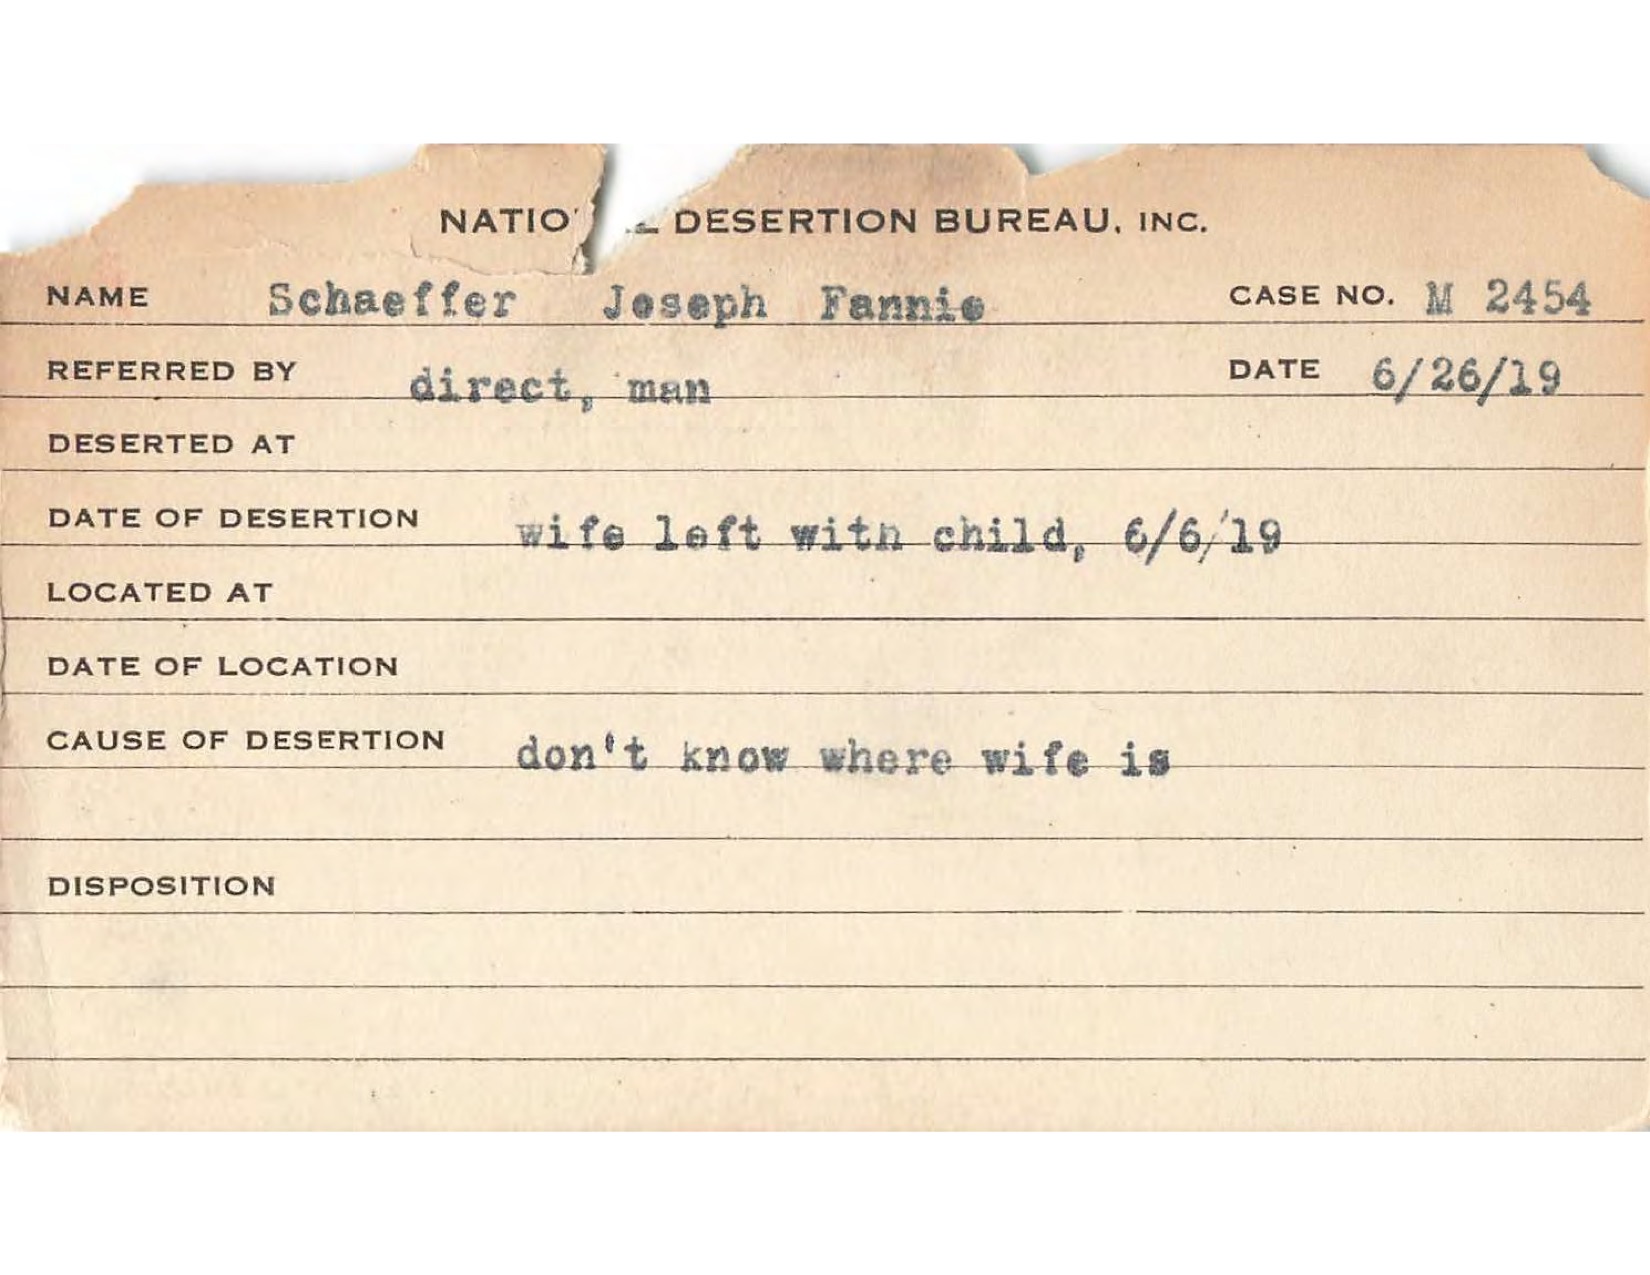 NATIO L DESERTION BUREAU, INC.
NAME Schaeffer Joseph Fannie CASE NO. M 2454
REFERRED BY direct, man DATE 6/26/19
DESERTED AT
DATE OF DESERTION wife left with child, 6/6/19
LOCATED AT
DATE OF LOCATION
CAUSE OF DESERTION don't know where wife is
DISPOSITION